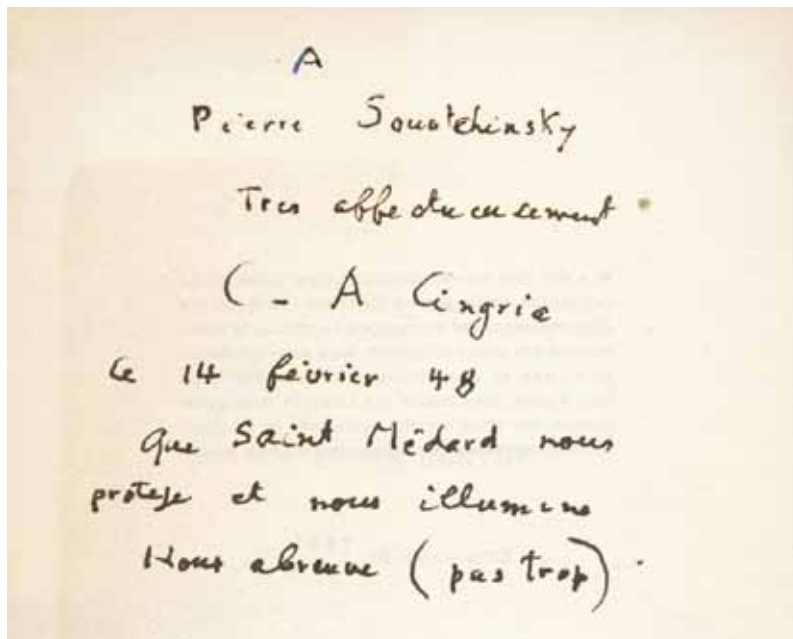 A
Pierre Souvtchinsky
Tres affectueusement
C - A Cingria
Ce 14 février 48
Que Saint Médard nous
protege et nous illumine
Nous abreuve (pas trop).